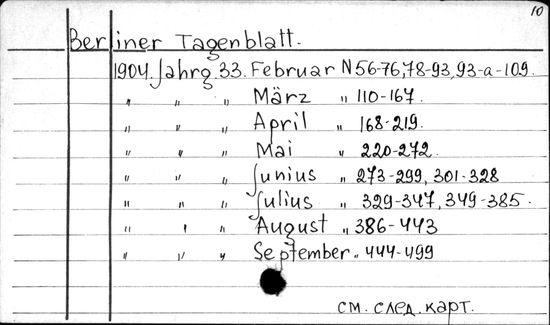 10
Berliner Tagenblatt.
1904. Jahrg. 33. Februar N 56-76, 78-93, 93-a-109.
" " " März " 110-167.
" " " April " 168-219.
" " " Mai " 220-272.
" " " Junius " 273-299, 301-328
" " " Julius " 329-347, 349-385.
" " " August " 386-443
" " " September " 444-499
см. след. карт.